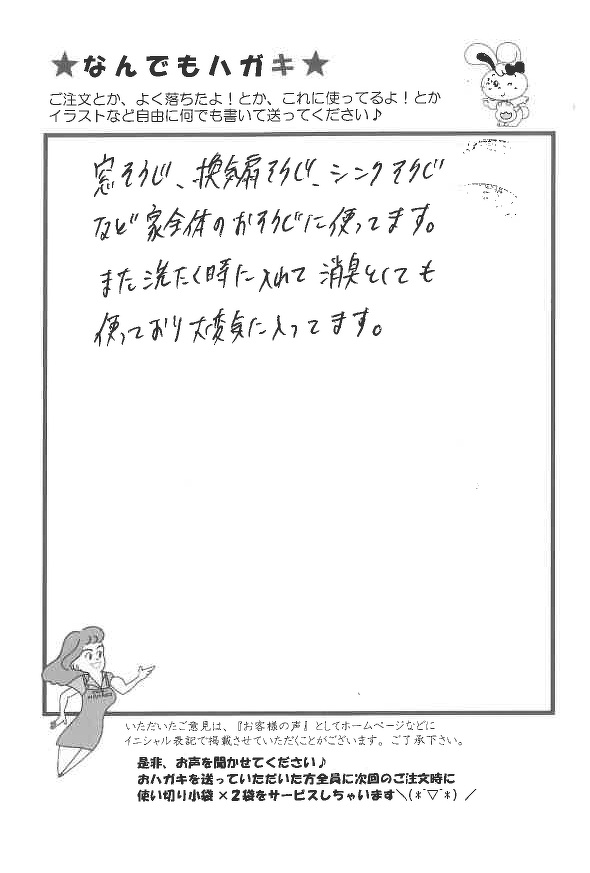 ★なんでもハガキ★
ご注文とか、よく落ちたよ！とか、これに使ってるよ！とか
イラストなど自由に何でも書いて送ってください♪
窓そうじ、換気扇そうじ、シンクそうじ
など家全体のおそうじに使ってます。
また洗たく時に入れて消臭としても
使っており大変気に入ってます。
いただいたご意見は、『お客様の声』としてホームページなどに
イニシャル表記で掲載させていただくことがございます。ご了承下さい。
是非、お声を聞かせてください♪
おハガキを送っていただいた方全員に次回のご注文時に
使い切り小袋×２袋をサービスしちゃいます＼(*^▽^*)／